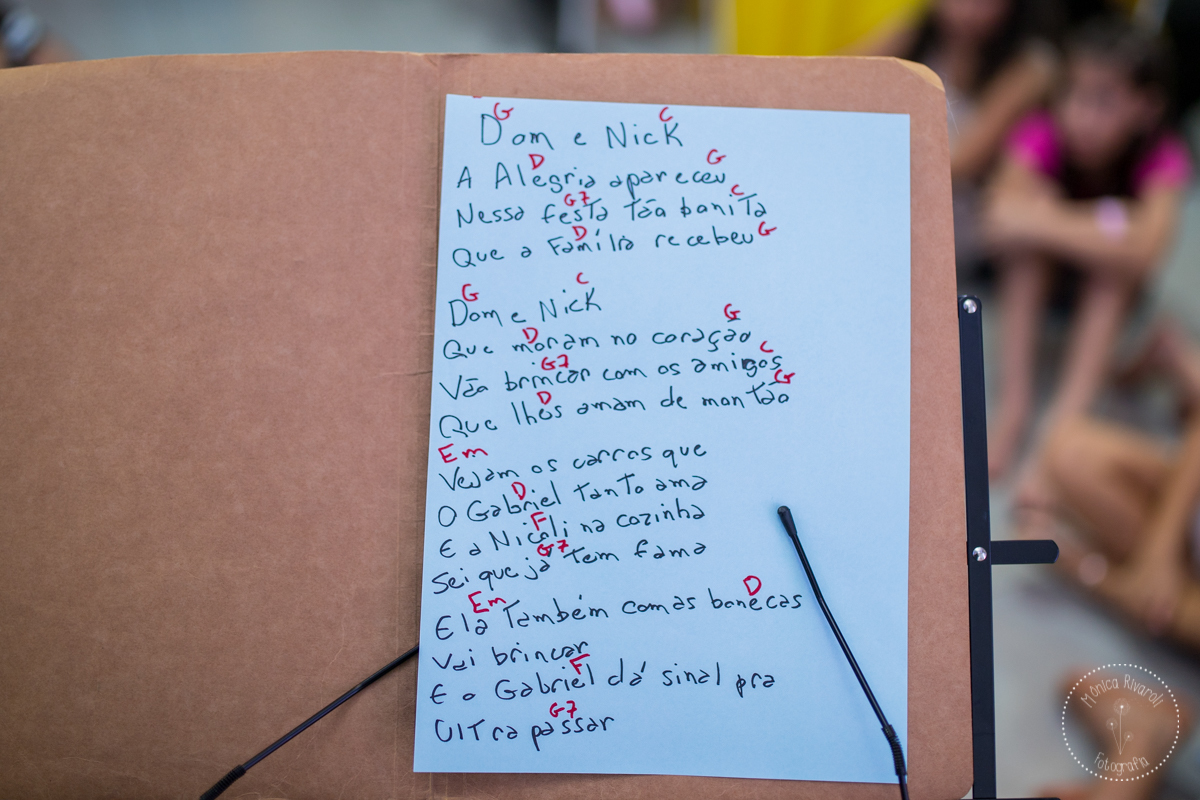 G C
Dom e Nick
D G
A Alegria apareceu
G7 C
Nessa festa tão bonita
D G
Que a Família recebeu
G C
Dom e Nick
D G
Que moram no coração
G7 C
Vão brincar com os amigos
D G
Que lhes amam de montão
Em
Vejam os carros que
D
O Gabriel tanto ama
F
E a Nicoli na cozinha
G7
Sei que já tem fama
Em D
Ela Também com as bonecas
Vai brincar
F
E o Gabriel dá sinal pra
G7
Ultra passar
Mônica Rivaroli
Fotografia